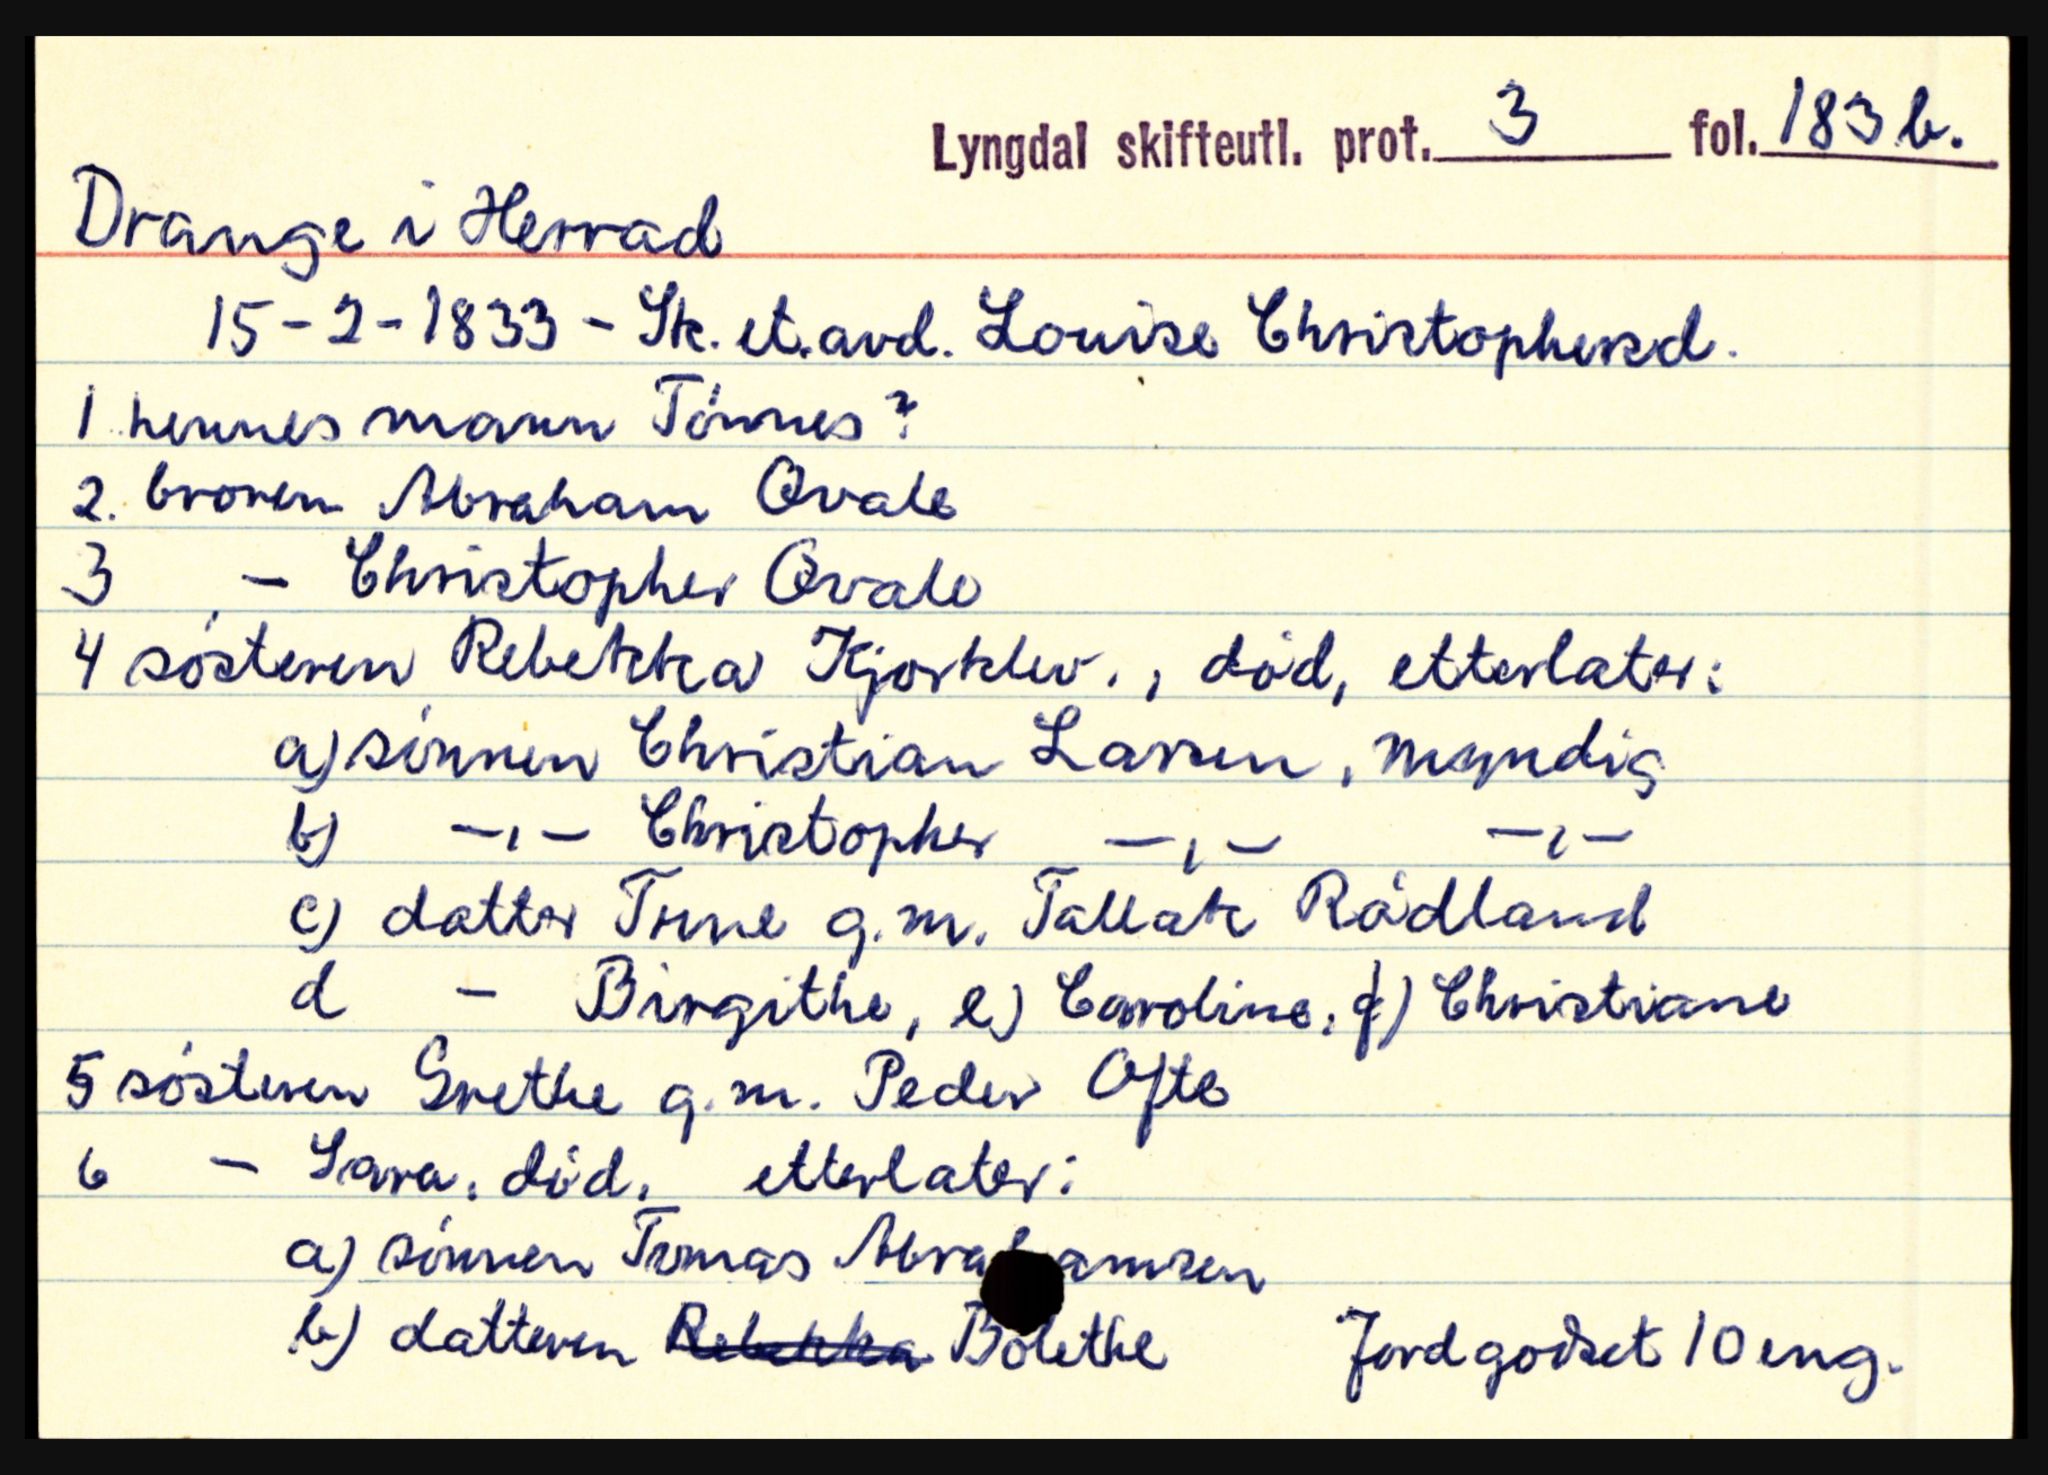 Lyngdal skifteutl. prot. 3 fol. 183 b.
Drange i Herrad
15-2-1833 - Sk. et. avd. Louise Christophersd.
1 hennes mann Tönnes?
2. broren Abraham Qvale
3 - Christopher Qvale
4 søsteren Rebekka Kjørklev., død, etterlater:
a) sønnen Christian Larsen, myndig
b) -,,- Christopher -,,- -,,-
c) datter Trine g.m. Tallak Rådland
d - Birgithe, e) Caroline, f) Christiane
5 søsteren Grethe g.m. Peder Ofte
6 - Sara, død, etterlater:
a) sønnen Tomas Abrahamsen
b) datteren Rebekka Bolethe Jordgodset 10 eng.